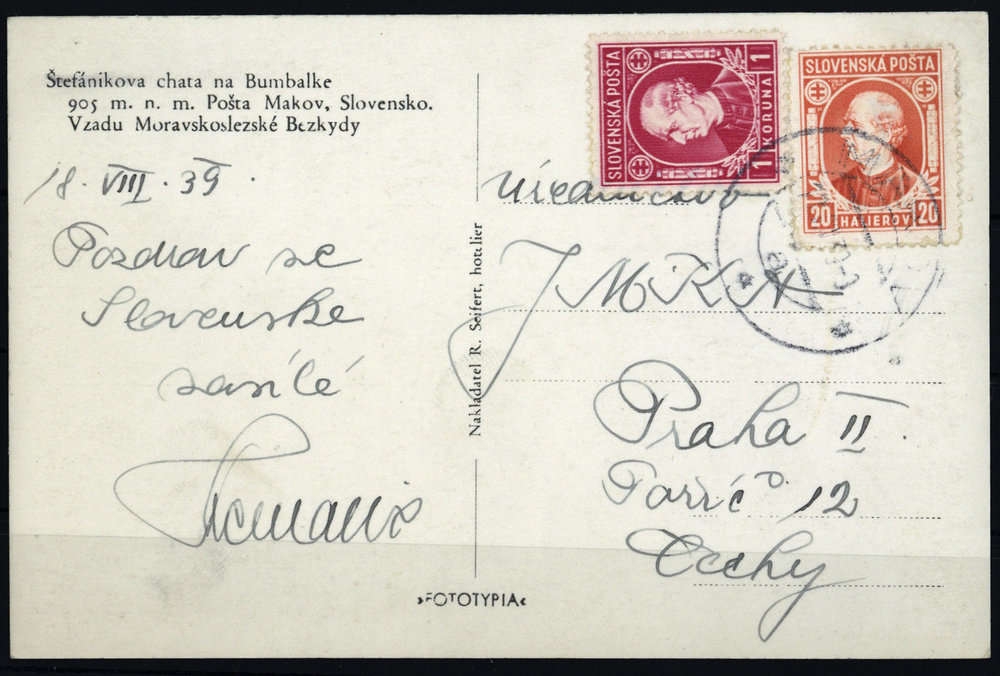 Štefánikova chata na Bumbalke
905 m. n. m. Pošta Makov, Slovensko.
Vzadu Moravskoslezské Bezkydy
18. VIII. 39.
Pozdrav se
Slovenske
zasílé
Nakladatel R. Seifert, hotelier
»FOTOTYPIA«
SLOVENSKÁ POŠTA
1 KORUNA 1
SLOVENSKÁ POŠTA
20 HALIEROV 20
Praha II.
Poříč 12
Čechy